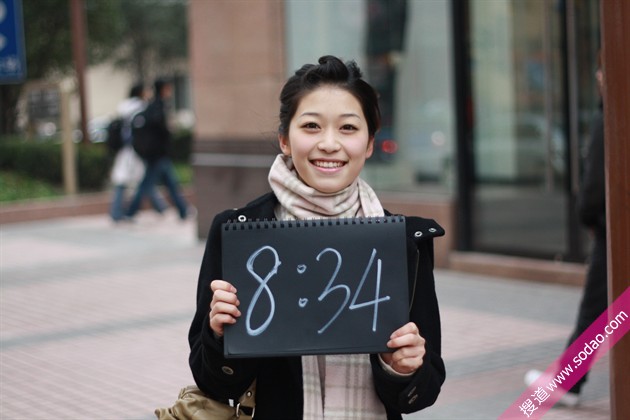 8:34
搜道www.sodao.com